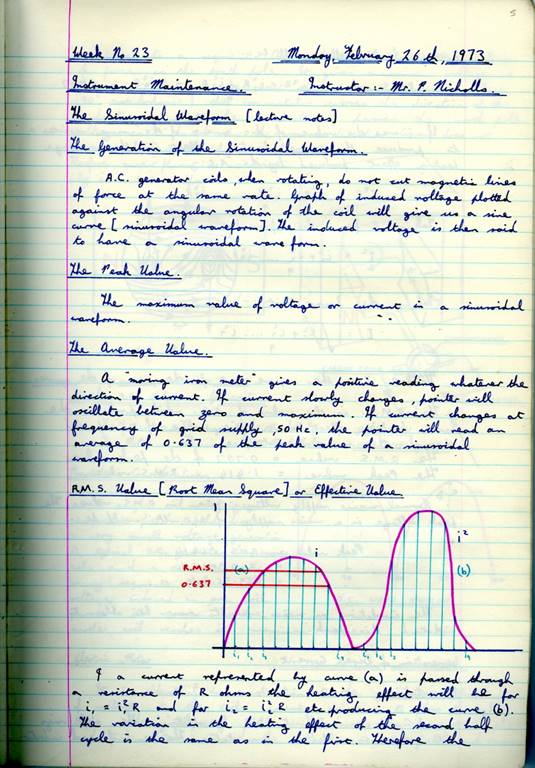 5
Week No 23 Monday, February 26th, 1973
Instrument Maintenance. Instructor :- Mr. P. Nicholls.
The Sinusoidal Waveform [lecture notes]
The Generation of the Sinusoidal Waveform.
A.C. generator coils, when rotating, do not cut magnetic lines
of force at the same rate. Graph of induced voltage plotted
against the angular rotation of the coil will give us a sine
curve [sinusoidal waveform]. The induced voltage is then said
to have a sinusoidal wave form.
The Peak Value.
The maximum value of voltage or current in a sinusoidal
waveform.
The Average Value.
A "moving iron meter" gives a positive reading whatever the
direction of current. If current slowly changes, pointer will
oscillate between zero and maximum. If current changes at
frequency of grid supply, 50 Hz, the pointer will read an
average of 0.637 of the peak value of a sinusoidal
waveform.
R.M.S. Value [Root Mean Square] or Effective Value
1
i
i²
R.M.S. (a) (b)
0.637
If a current represented by curve (a) is passed through
a resistance of R ohms the heating effect will be for
i₁ = i₁²R and for i₂ = i₂²R etc producing the curve (b).
The variation in the heating effect of the second half
cycle is the same as in the first. Therefore the